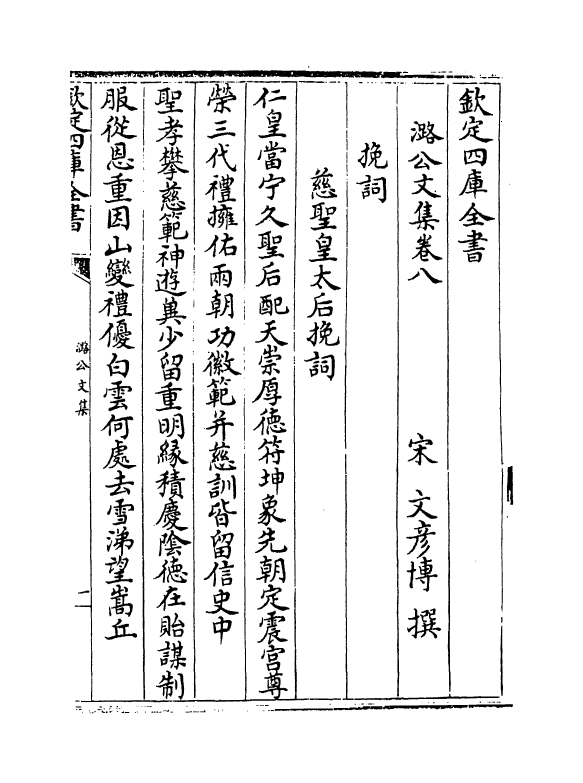 欽定四庫全書
潞公文集卷八
宋 文彦博 撰
挽詞
慈聖皇太后挽詞
仁皇當宁久聖后配天崇厚德符坤象先朝定震宫尊
榮三代禮擁佑兩朝功徽範并慈訓皆留信史中
聖孝攀慈範神遊兾少留重明緣積慶陰德在貽謀制
服從恩重因山變禮優白雲何處去雪涕望嵩丘
欽定四庫全書
潞公文集
一